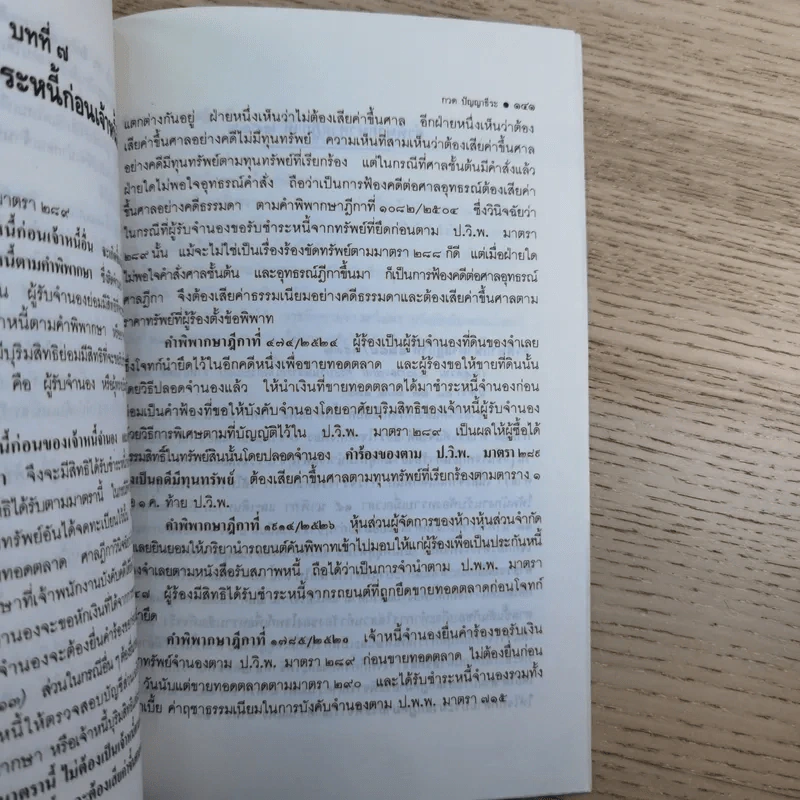 บทที่ ๗
ระหนี้ก่อนเจ้าหนี้
มาตรา ๒๘๙
นี้ก่อนเจ้าหนี้อื่น
นี้ตามคำพิพากษา
น ผู้รับจำนองย่อมมีสิทธิ
าหนี้ตามคำพิพากษา
มีบุริมสิทธิย่อมมีสิทธิที่จะ
คือ ผู้รับจำนอง
นี้ก่อนของเจ้าหนี้จำนอง
า จึงจะมีสิทธิได้รับชำระหนี้
สิทธิได้รับตามมาตรานี้
ทรัพย์อันได้จดทะเบียนไว้
ายทอดตลาด ศาลฎีกาวินิจฉัย
าที่เจ้าพนักงานบังคับคดี
จำนองจะขอหักเงินที่ได้จาก
จำนองจะต้องยื่นคำร้องขอ
๑๓) ส่วนในกรณีอื่น ๆ ต้อง
หนี้ให้ตรวจสอบบัญชีส่วน
พากษา หรือเจ้าหนี้บุริมสิทธิ
มาตรานี้ ไม่ต้องเป็นเจ้าหนี้
ะต้องเสียค่าขึ้น
กวด ปัญญาธีระ ● ๑๔๑
แตกต่างกันอยู่ ฝ่ายหนึ่งเห็นว่าไม่ต้องเสียค่าขึ้นศาล อีกฝ่ายหนึ่งเห็นว่าต้อง
เสียค่าขึ้นศาลอย่างคดีไม่มีทุนทรัพย์ ความเห็นที่สามเห็นว่าต้องเสียค่าขึ้นศาล
อย่างคดีมีทุนทรัพย์ตามทุนทรัพย์ที่เรียกร้อง แต่ในกรณีที่ศาลชั้นต้นมีคำสั่งแล้ว
ฝ่ายใดไม่พอใจอุทธรณ์คำสั่ง ถือว่าเป็นการฟ้องคดีต่อศาลอุทธรณ์ต้องเสียค่า
ขึ้นศาลอย่างคดีธรรมดา ตามคำพิพากษาฎีกาที่ ๑๐๘๒/๒๕๐๔ ซึ่งวินิจฉัยว่า
ในกรณีที่ผู้รับจำนองขอรับชำระหนี้จากทรัพย์ที่ยึดก่อนตาม ป.วิ.พ. มาตรา
๒๘๙ นั้น แม้จะไม่ใช่เป็นเรื่องร้องขัดทรัพย์ตามมาตรา ๒๘๘ ก็ดี แต่เมื่อฝ่ายใด
ไม่พอใจคำสั่งศาลชั้นต้น และอุทธรณ์ฎีกาขึ้นมา ก็เป็นการฟ้องคดีต่อศาลอุทธรณ์
ศาลฎีกา จึงต้องเสียค่าธรรมเนียมอย่างคดีธรรมดาและต้องเสียค่าขึ้นศาลตาม
ราคาทรัพย์ที่ผู้ร้องตั้งข้อพิพาท
คำพิพากษาฎีกาที่ ๔๗๔/๒๕๒๔ ผู้ร้องเป็นผู้รับจำนองที่ดินของจำเลย
ซึ่งโจทก์นำยึดไว้ในอีกคดีหนึ่งเพื่อขายทอดตลาด และผู้ร้องขอให้ขายที่ดินนั้น
โดยวิธีปลอดจำนองแล้ว ให้นำเงินที่ขายทอดตลาดได้มาชำระหนี้จำนองก่อน
ย่อมเป็นคำฟ้องที่ขอให้บังคับจำนองโดยอาศัยบุริมสิทธิของเจ้าหนี้ผู้รับจำนอง
ด้วยวิธีการพิเศษตามที่บัญญัติไว้ใน ป.วิ.พ. มาตรา ๒๘๙ เป็นผลให้ผู้ซื้อได้
กรรมสิทธิ์ในทรัพย์สินนั้นโดยปลอดจำนอง คำร้องของตาม ป.วิ.พ. มาตรา ๒๘๙
จึงเป็นคดีมีทุนทรัพย์ ต้องเสียค่าขึ้นศาลตามทุนทรัพย์ที่เรียกร้องตามตาราง ๑
อ ๑ ค. ท้าย ป.วิ.พ.
คำพิพากษาฎีกาที่ ๑๙๑๔/๒๕๒๖ หุ้นส่วนผู้จัดการของห้างหุ้นส่วนจำกัด
จำเลยยินยอมให้ภริยานำรถยนต์คันพิพาทเข้าไปมอบให้แก่ผู้ร้องเพื่อเป็นประกันหนี้
ของจำเลยตามหนังสือรับสภาพหนี้ ถือได้ว่าเป็นการจำนำตาม ป.พ.พ. มาตรา
๔๘ ผู้ร้องมีสิทธิได้รับชำระหนี้จากรถยนต์ที่ถูกยึดขายทอดตลาดก่อนโจทก์
ายึด
คำพิพากษาฎีกาที่ ๑๗๘๕/๒๕๒๑ เจ้าหนี้จำนองยื่นคำร้องขอรับเงิน
าทรัพย์จำนองตาม ป.วิ.พ. มาตรา ๒๘๙ ก่อนขายทอดตลาด ไม่ต้องยื่นก่อน
วันนับแต่ขายทอดตลาดตามมาตรา ๒๙๐ และได้รับชำระหนี้จำนองรวมทั้ง
เบี้ย ค่าฤชาธรรมเนียมในการบังคับจำนองตาม ป.พ.พ. มาตรา ๗๑๕